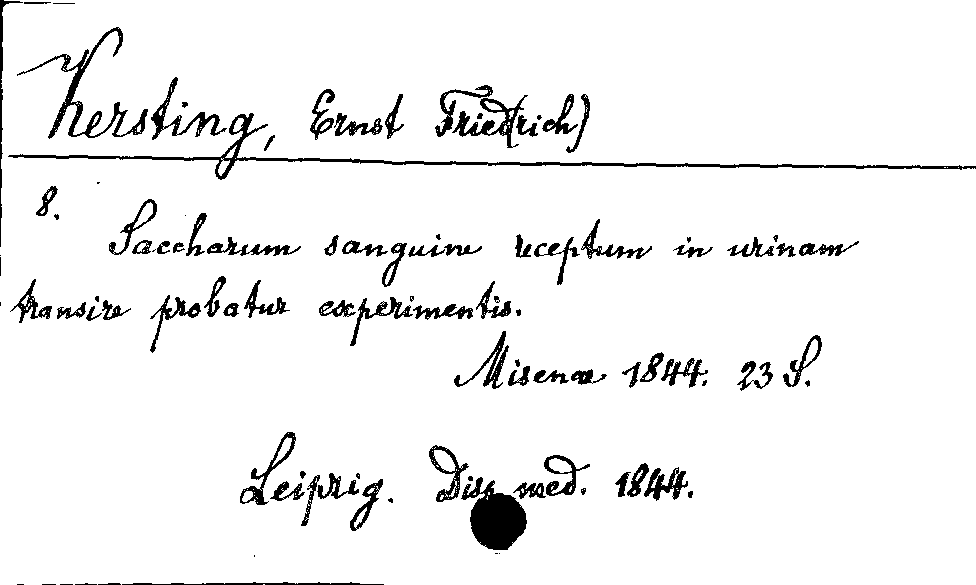 Kersting, Ernst Fried(rich)
8.
Saccharum sanguine receptum in urinam
transire probatur experimentis.
Misenae 1844. 23 S.
Leipzig. Diss. med. 1844.